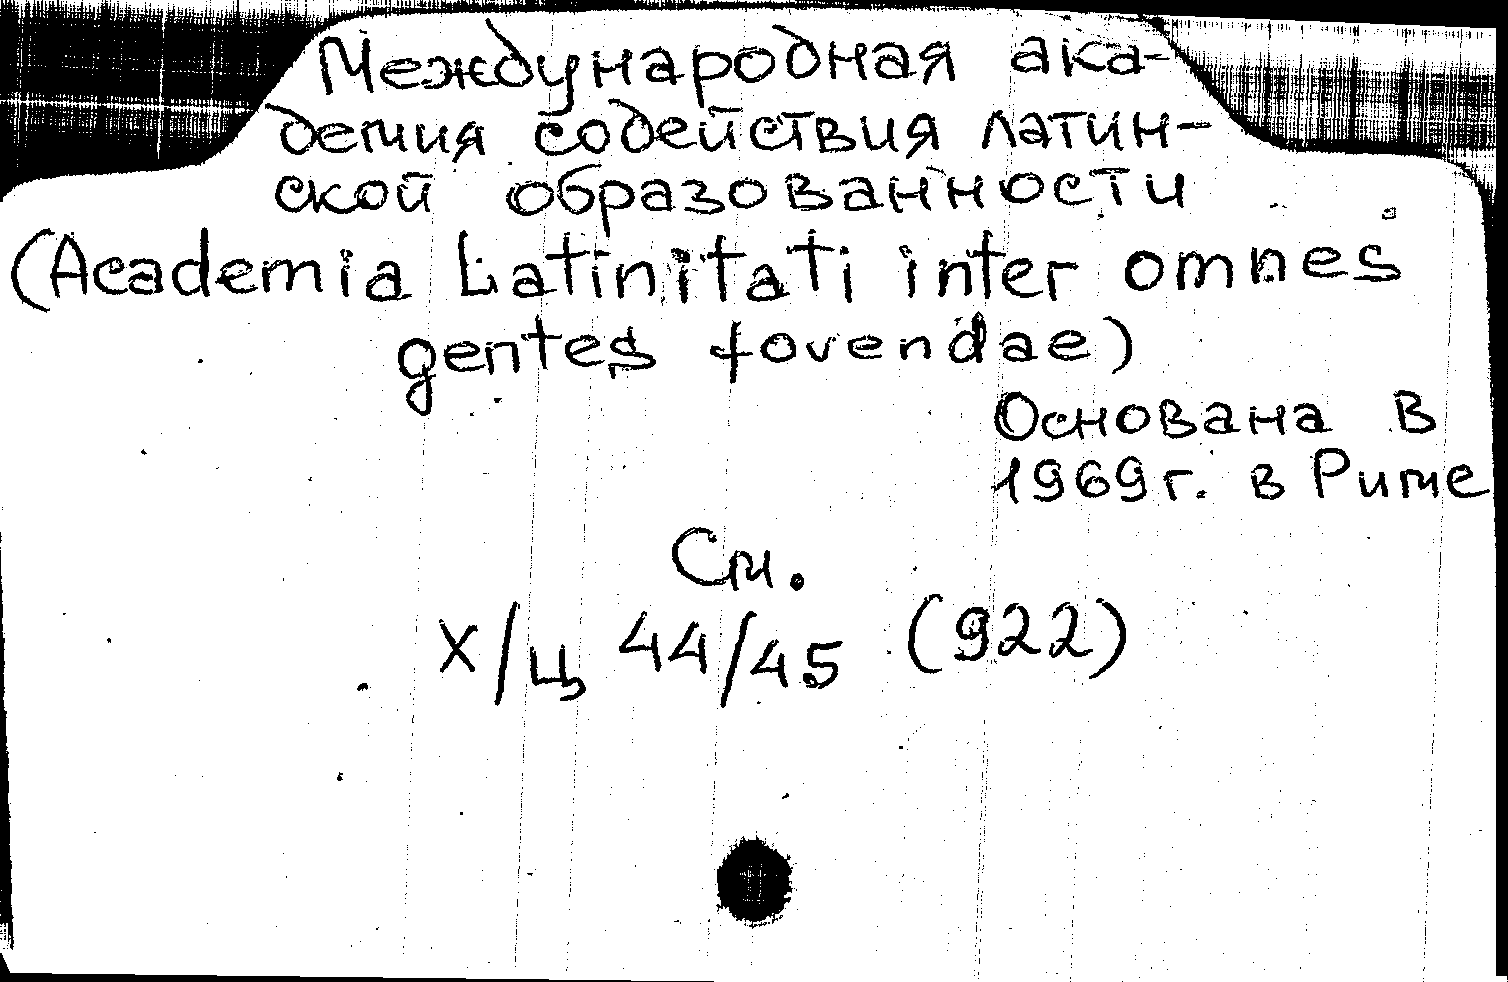 Международная ака-
демия содействия латин-
ской образованности
(Academia Latinitati inter omnes
gentes fovendae)
Основана в
1969г. в Риме
См.
х/ц 44/45 (922)